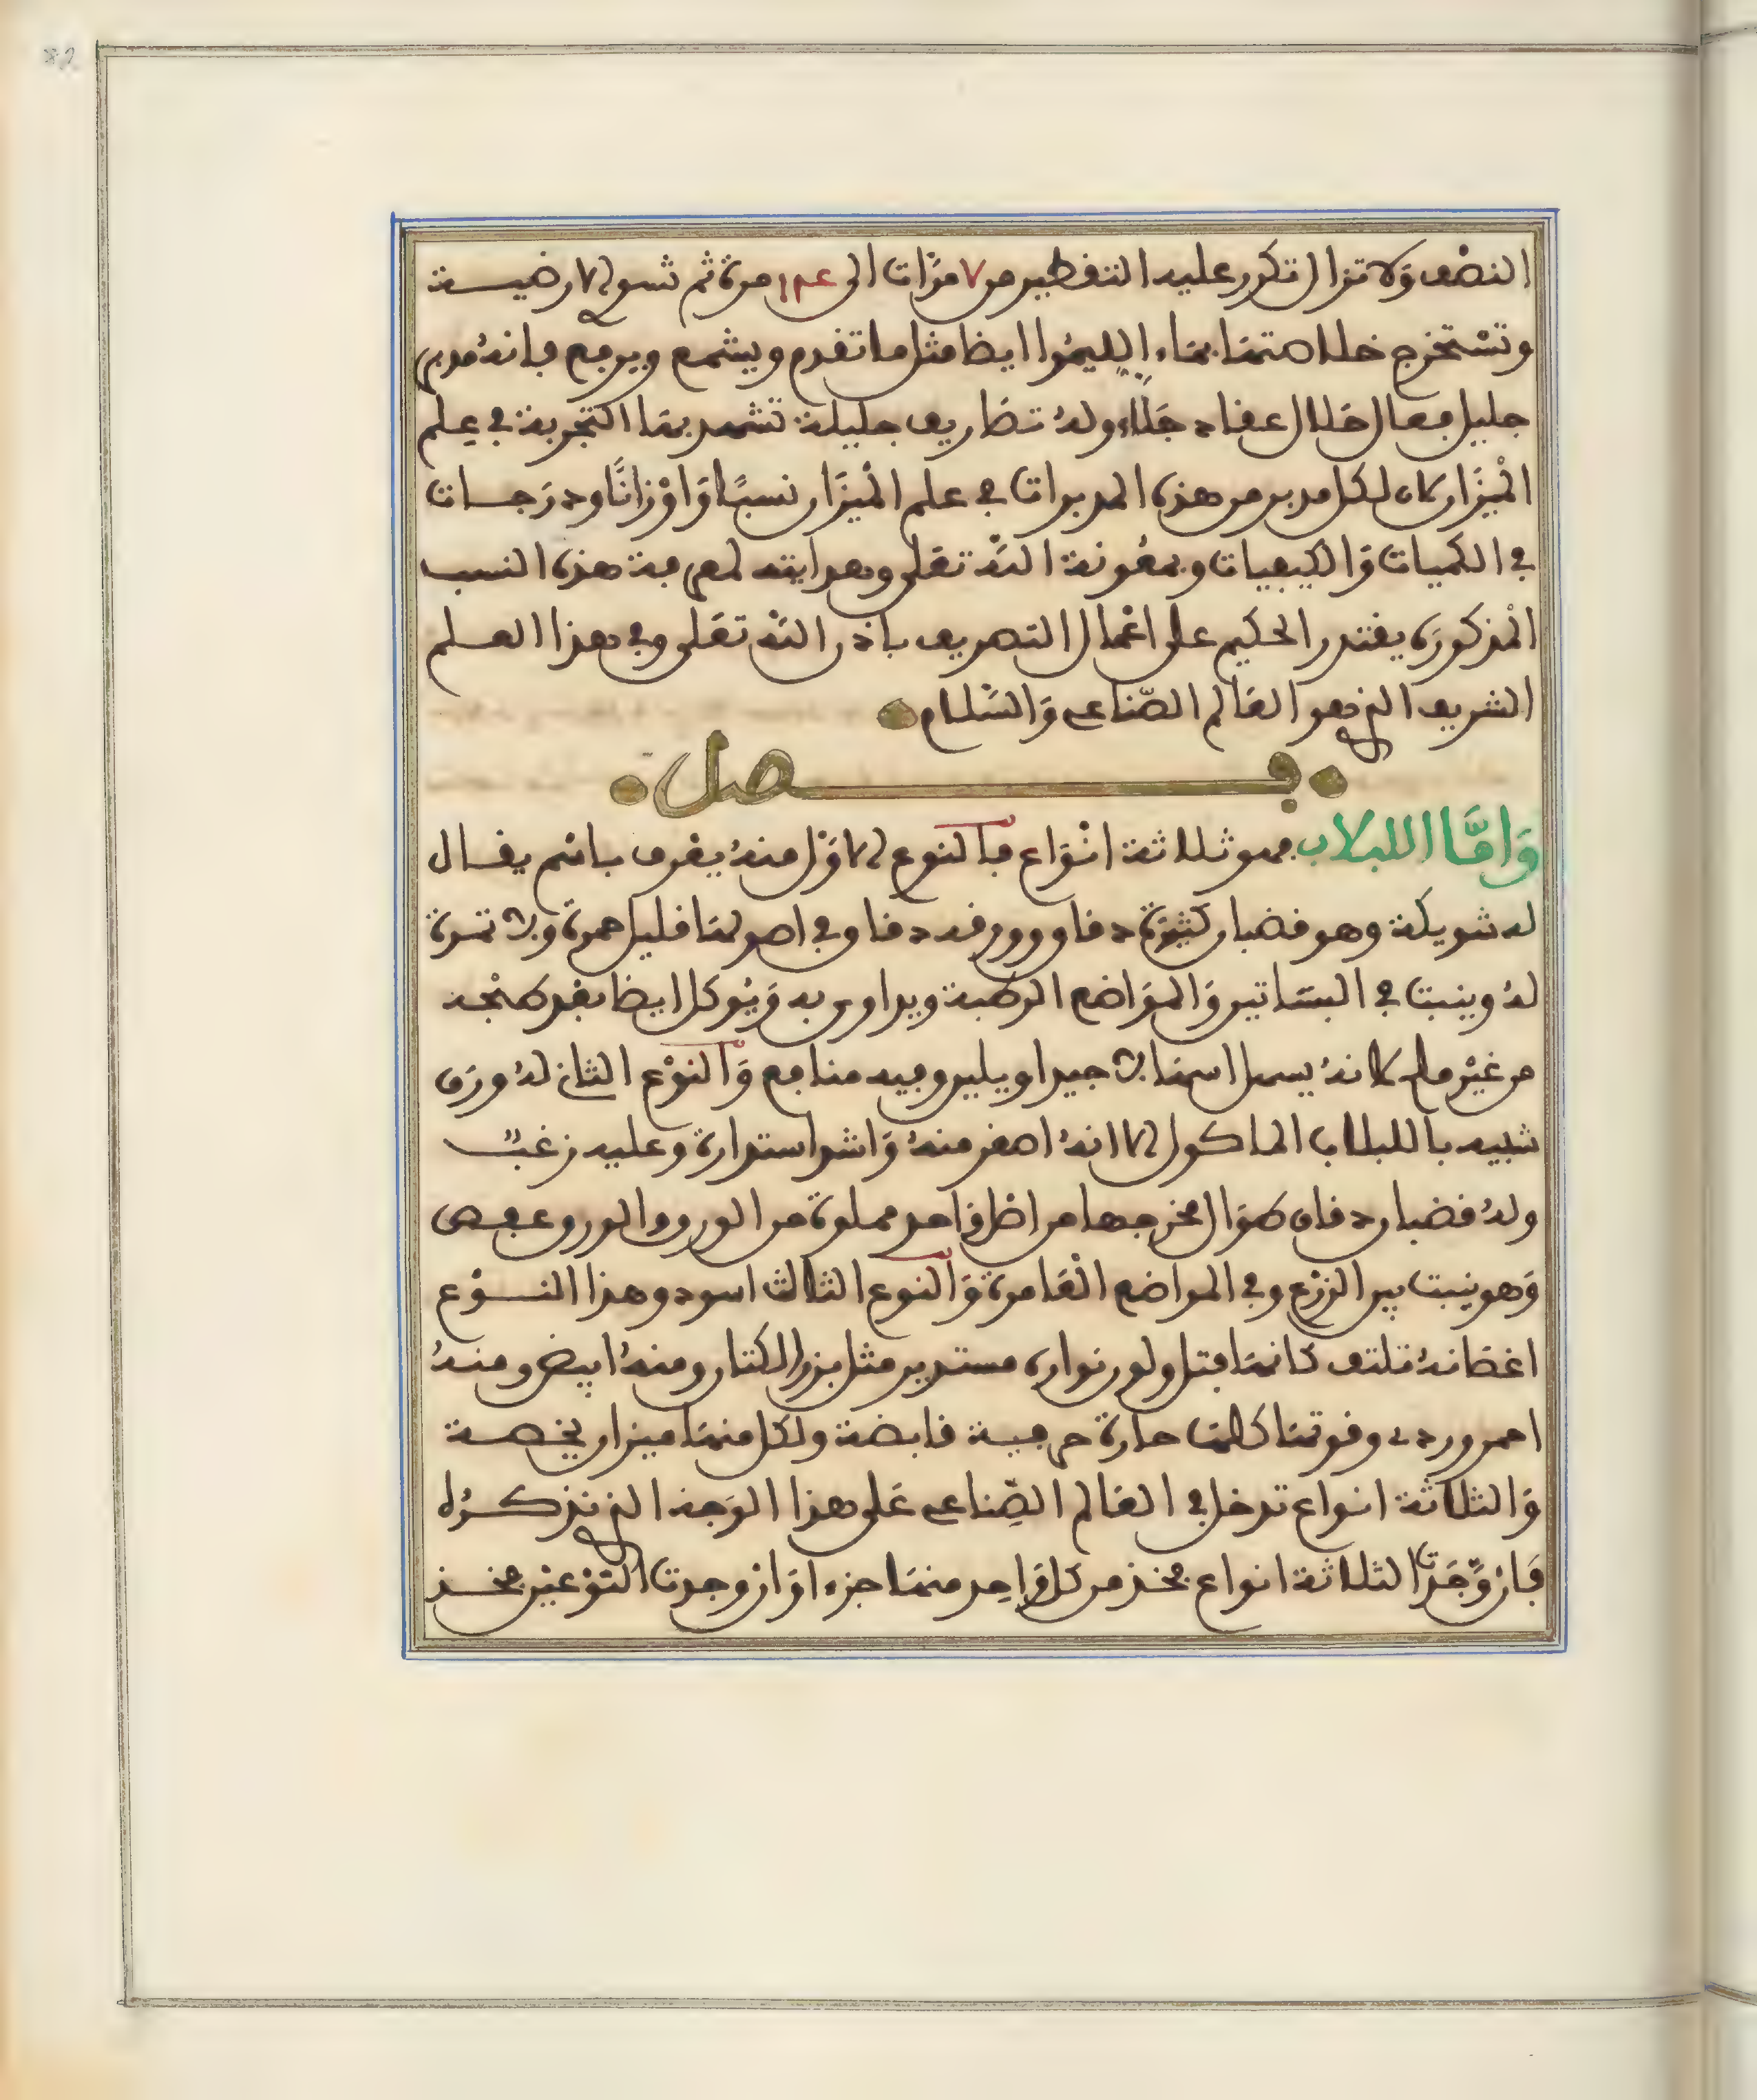 النصف ولا تزال تكرر عليه التقطير من ٧ مرات الى مرة ثم تسوى الارضيـة
وتستخرج خلاصتها بماء الليموا ايضا مثل ما تقدم ويشمع ويرفع فانه مدبر
جليل فعال حلال عقاد جلاء وله تصاريف جليلة تشهد بها التجربة في علم
الميزان لان لكل مدبر من هذه المدبرات في علم الميزان نسبًا وَاوْزانًا ودرَجـات
في الكميات وَالكيفيات وبمعونة الله تعلى وهدايته لمعرفة هذه النسب
المذكورة يقتدر الحكيم على اعمال التصريف باذن الله تعلى وفي هذا العـلم
الشريف الذي هو العالم الصّناعي وَالسّلام
فـــصل
وَامَّا اللبلاب فهو ثلاثة انْوَاع فالنوع الاوّل منهُ يعْرف باسْم يقـال
له شويكة وهو قضبان كثيرة دقاق وورقه دقاق وفي اصولها قليل حمرة ولا ثمرة
لهُ وينبت في البساتين وَالموَاضع الرطبة ويداوى به وَيُوكل ايضا بعْد طبْخه
من غيْر ملح لانهُ يسهل اسهالا جيدا ويلين وفيه منافع وَالنوْع الثاني لهُ ورَق
شبيه باللبلاب الماكول الا انهُ اصغر منهُ وَاشد استدارة وعليه زغبٌ
ولهُ قضبان دقاق طوَال مخرجها من اصْل وَاحد مملوة من الورق والورق عفص
وَهو ينبت بين الزرْع وفي المواضع الْعَامرة وَالنوع الثالث اسود وهذا النــوْع
اغصانهُ تلتف كانها فتل ولون نواره مستدير مثل بزر الكتان ومنهُ ابيض ومنهُ
احمر وردي وقوتها كلها حارة حرفية قابضة ولكل منها ميزان يخصـه
وَالثلاثة انواع تدخل في العالم الصِّناعي عَلى هذا الوَجه الذي نذكــرُه
فَان وَجَدْتَ الثلاثة انواع فخذ من كل وَاحِد منها جزءا وَان وجدت النوْعيْن فخــذ